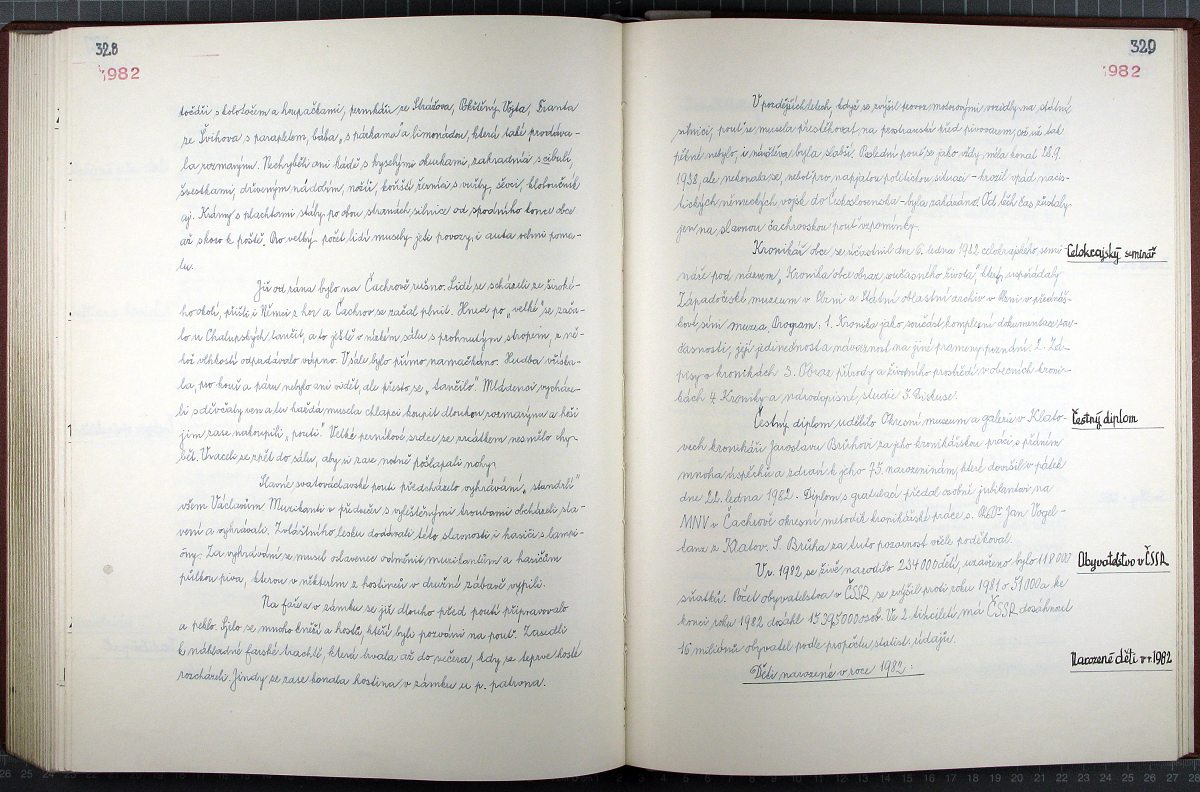 328
1982
točáři s kolotočem a houpačkami, perníkáři ze Strážova, Pokštěný Vojta, Franta
ze Švihova s paraplem, bába „s párkama“ a limonádou, která také prodáva-
la rozmarýnu. Nechyběli ani kádě s kyselými okurkami, zahradníci s cibulí,
švestkami, dřevěným nádobím, noži, košíři řezníci s vuřty, ševci, kloboučník
aj. Krámy s plachtami stály po obou stranách silnice od spodního konce obce
až skoro k poště. Pro velký počet lidí musely jeti povozy i auta velmi poma-
lu.
Již od rána bylo na Čachrově rušno. Lidé se scházeli ze široké-
ho okolí, přišli i Němci z hor a Čachrov se začal plnit. Hned po „velké“ se zača-
lo u Chalupských tančit, a to ještě v nízkém sále s prohnutým stropem, z ně-
hož vlhkostí odpadávalo vápno. V sále bylo přímo namačkáno. Hudba vříska-
la, pro kouř a páru nebylo ani vidět, ale přesto se „tančilo“. Mládenci vycháze-
li s děvčaty ven a tu každá musela chlapci koupit dlouhou rozmarýnu a hoši
jim zase nakoupili „pouti“. Velké perníkové srdce se zrcátkem nesmělo chy-
bět. Vraceli se zpět do sálu, aby si zase notně pošlapali nohy.
Slavné svatováclavské pouti předcházelo vyhrávání „standrlí“
všem Václavům. Muzikanti v předvečer s vyleštěnými troubami obcházeli sta-
vení a vyhrávali. Zvláštního lesku dodávali této slavnosti i hasiči s lampi-
óny. Za vyhrávání se musel oslavenec odměnit muzikantům a hasičům
půlkou piva, kterou v některém z hostinců v družné zábavě vypili.
Na faře a v zámku se již dlouho před poutí připravovalo
a peklo. Sjelo se mnoho kněží a hostů, kteří byli pozváni na pouť. Zasedli
k nákladné farské trachtě, která trvala až do večera, kdy se teprve hosté
rozcházeli. Jindy se zase konala hostina v zámku u p. patrona.
329
1982
V pozdějších letech, když se zvýšil provoz motorovými vozidly na státní
silnici, pouť se musela přestěhovat na prostranství před pivovarem, což už tak
pěkné nebylo, i návštěva byla slabší. Poslední pouť se jako vždy měla konat 28.9.
1938, ale nekonala se, neboť pro napjatou politickou situaci - hrozil vpád nacis-
tických německých vojsk do Československa - byla zakázána. Od těch čas zůstaly
jen na slavnou čachrovskou pouť vzpomínky.
Kronikář obce se účastnil dne 6. ledna 1982 celokrajského semi-
Celokrajský seminář
náře pod názvem „Kronika obce obraz současného života“, který uspořádaly
Západočeské muzeum v Plzni a Státní oblastní archiv v Plzni v přednáš-
kové síni muzea. Program: 1. Kronika jako součást komplexní dokumentace sou-
časnosti, její jedinečnost a návaznost na jiné prameny poznání. 2. Zá-
pisy o kronikách 3. Obraz přírody a životního prostředí v obecních kroni-
kách 4. Kroniky a národopisné studie 5. Diskuse.
Čestný diplom udělilo Okresní muzeum a galerie v Klato-
Čestný diplom
vech kronikáři Jaroslavu Brůhovi za jeho kronikářskou práci s přáním
mnoha úspěchů a zdraví k jeho 75. narozeninám, které dovršil v pátek
dne 22. ledna 1982. Diplom s gratulací předal osobně jubilantovi na
MNV v Čachrově okresní metodik kronikářské práce s. RSDr. Jan Vogel-
tanz z Klatov. S. Brůha za tuto pozornost vřele poděkoval.
V r. 1982 se živě narodilo 234 000 dětí, uzavřeno bylo 118 000
Obyvatelstvo v ČSSR
sňatků. Počet obyvatelstva v ČSSR se zvýšil proti roku 1981 o 51 000 a ke
konci roku 1982 dosáhl 15 395 000 osob. Ve 2. tisíciletí má ČSSR dosáhnout
16 miliónů obyvatel podle propočtu statist. údajů.
Narozené děti v r. 1982
Děti narozené v roce 1982: